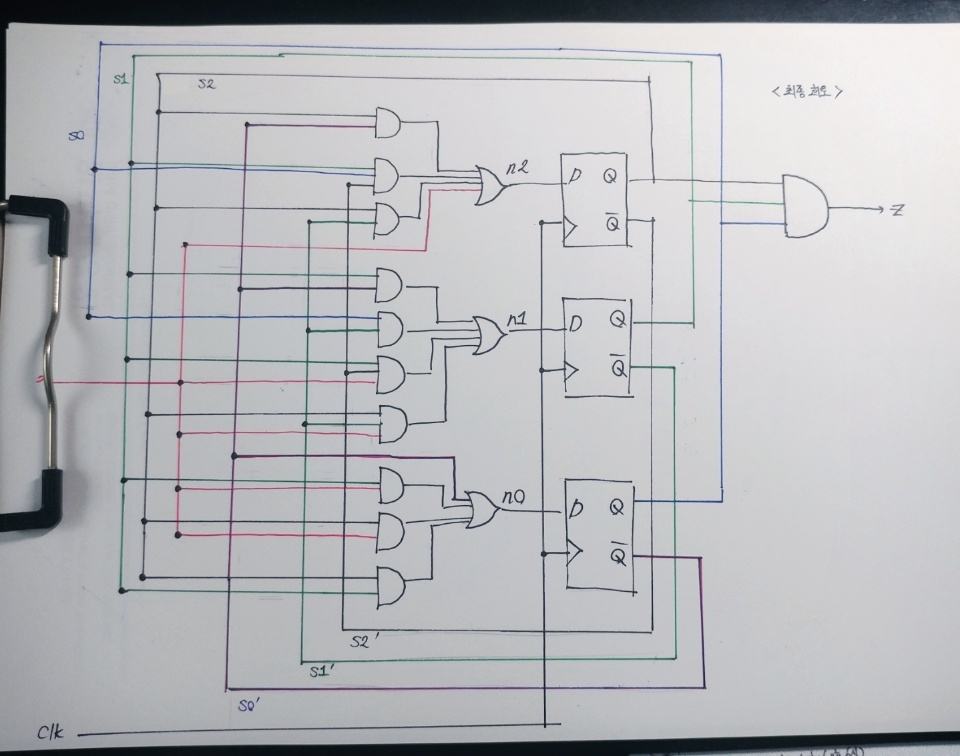 S1
S2
<최종 회로>
S0
n2
D Q
Q̅
Z
n1
D Q
Q̅
n0
D Q
Q̅
S2'
S1'
S0'
Clk